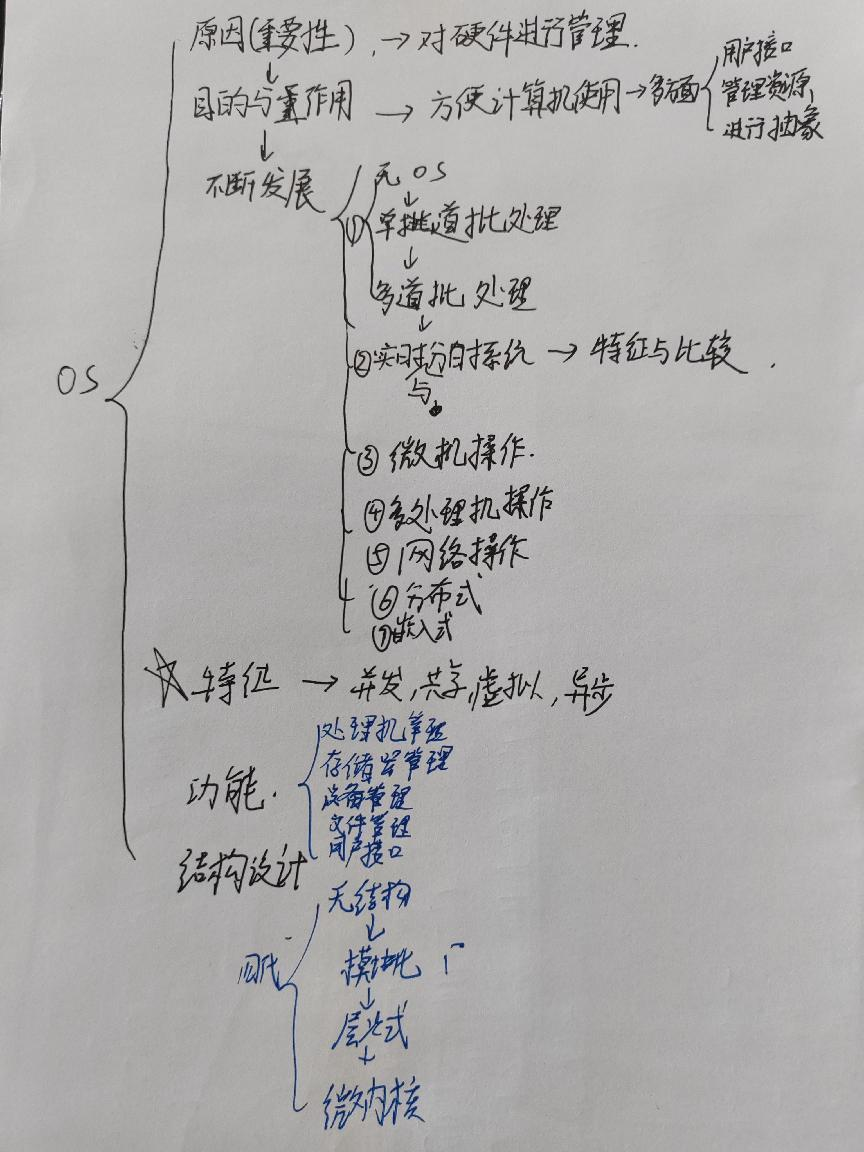 OS
原因(重要性), → 对硬件进行管理.
目的与作用 → 方便计算机使用 → 多方面
用户接口
管理资源
进行抽象
不断发展
① 无OS
单道批处理
多道批处理
②实时与分时系统 → 特征与比较.
③ 微机操作.
④多处理机操作
⑤网络操作
⑥分布式
⑦嵌入式
☆特征 → 并发,共享,虚拟,异步
功能.
处理机管理
存储器管理
设备管理
文件管理
用户接口
结构设计
四代
无结构
模块化
层次式
微内核